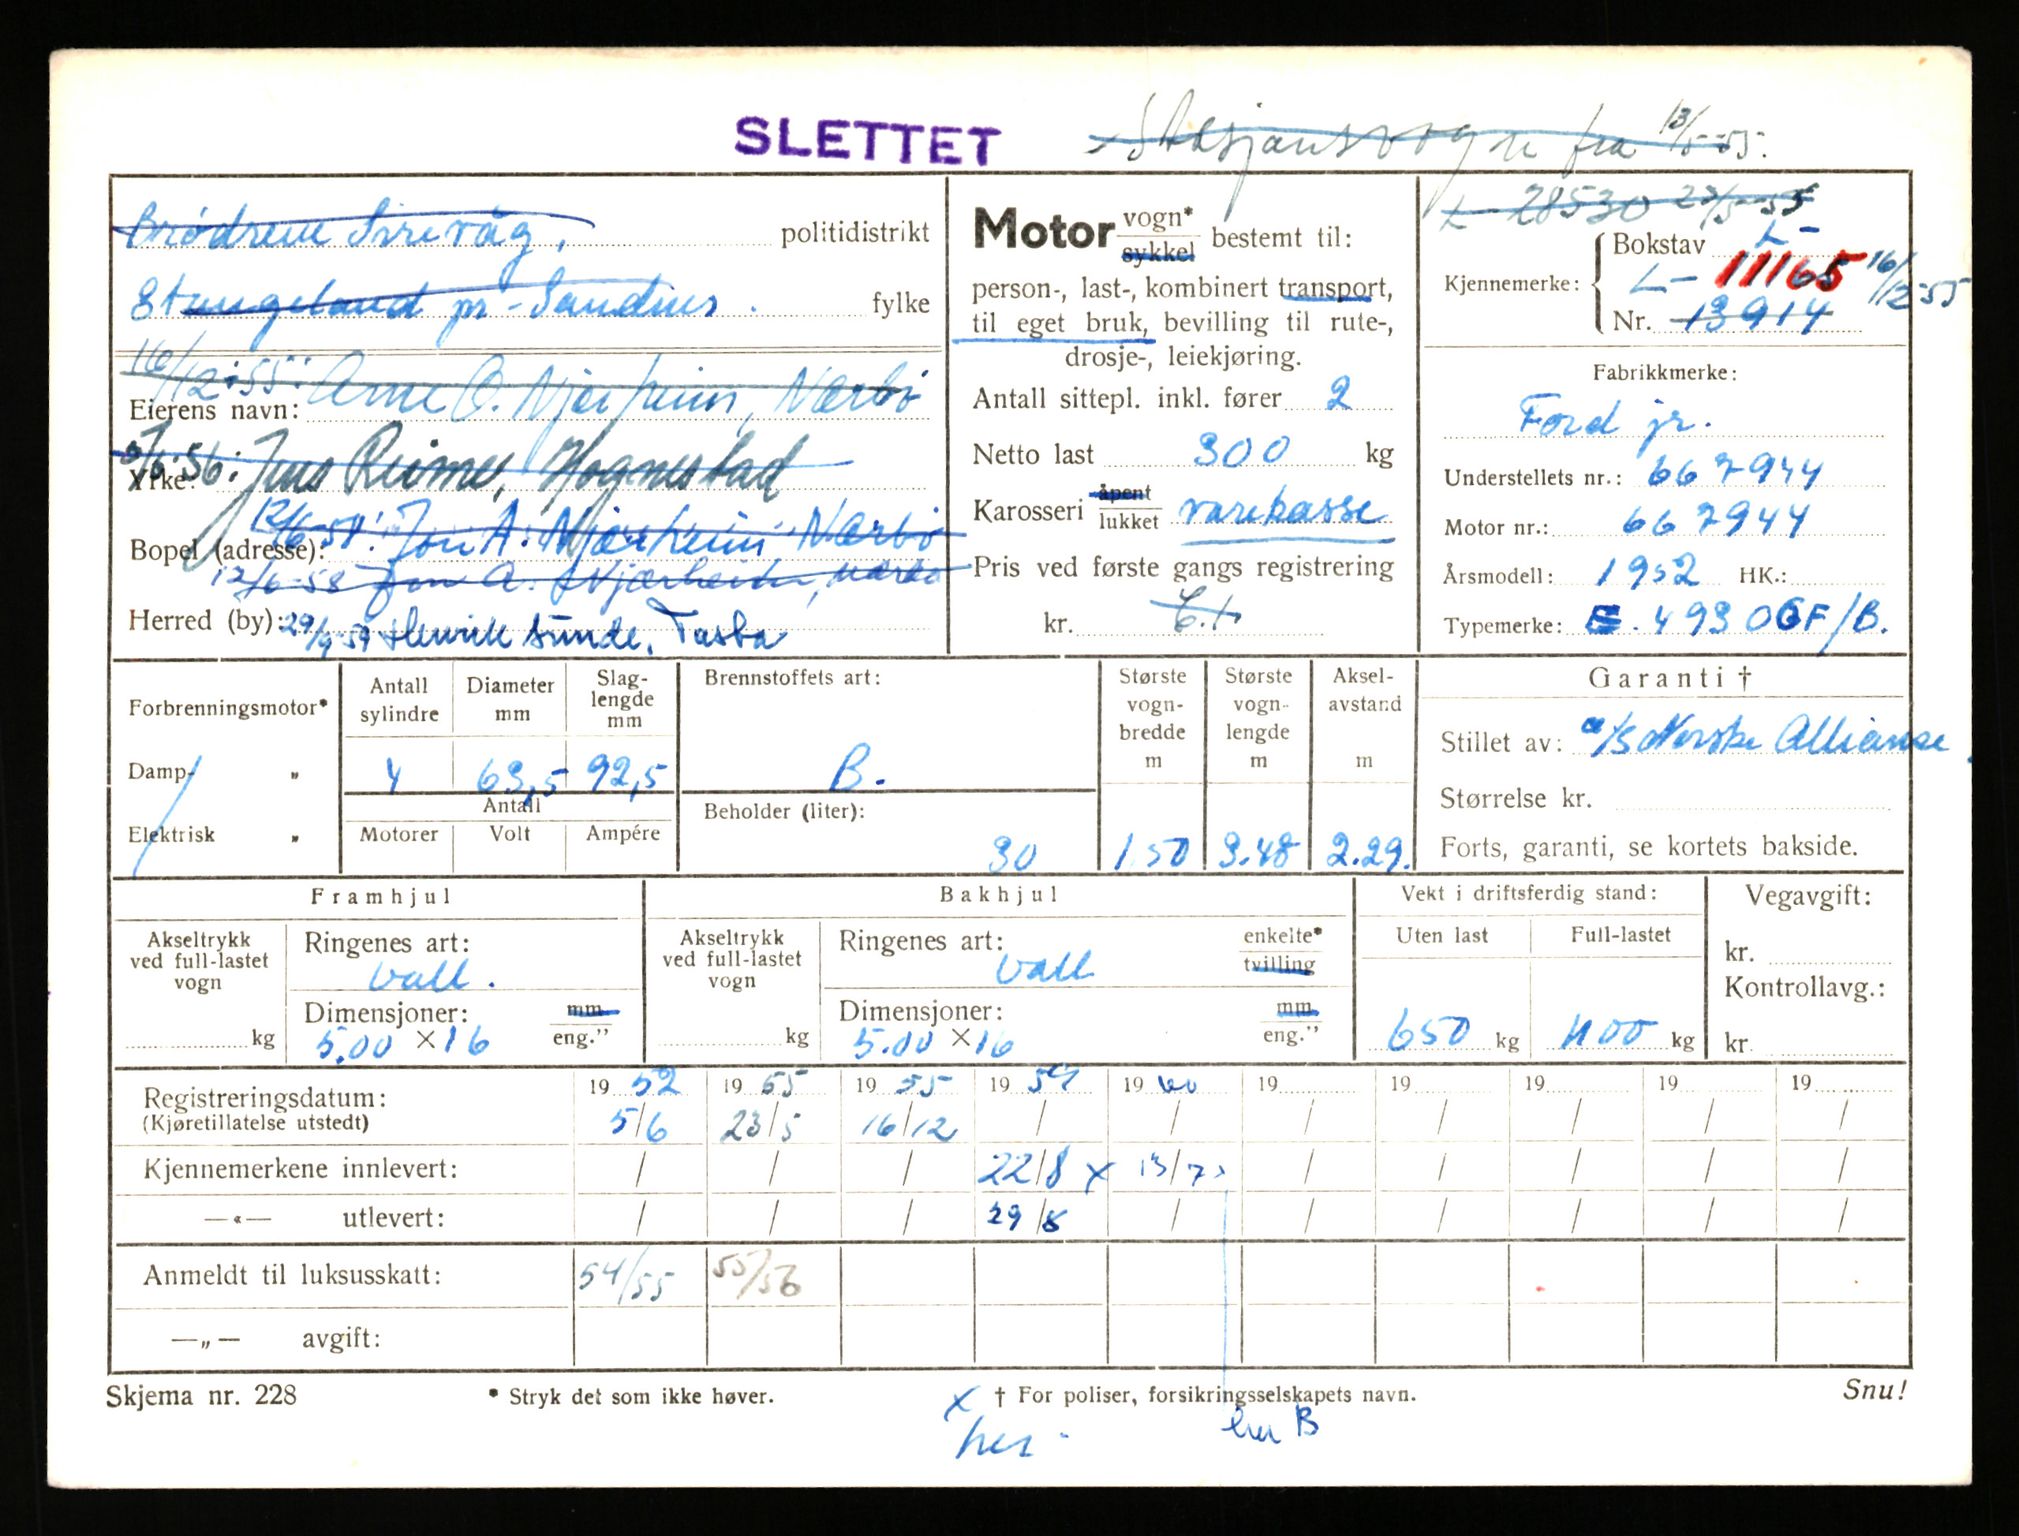 SLETTET
Stasjonsvogn fra 13/5-55.
Brødrene Sirevåg, politidistrikt
Stangeland pr. Sandnes. fylke
16/12-55: Arne O. Njærheim, Nærbø
Eierens navn:
Jens Reime, Hognestad
Yrke:
12/6-58: Jon A. Njærheim Nærbø
Bopel (adresse):
12/6-58 Jon A. Njærheim, Nærbø
Herred (by): 29/9-59 Henrik Sunde. Tasta
Motor vogn* sykkel bestemt til:
person-, last-, kombinert transport,
til eget bruk, bevilling til rute-,
drosje-, leiekjøring.
Antall sittepl. inkl. fører 2
Netto last 300 kg
Karosseri åpent lukket varekasse
Pris ved første gangs registrering
kr.
L-28530 23/5-55
Kjennemerke: Bokstav L-
L-11165 16/12-55
Nr. 13914
Fabrikkmerke:
Ford jr.
Understellets nr.: 667944
Motor nr.: 667944
Årsmodell: 1952 HK.:
Typemerke: E. 4930GF/B.
Forbrenningsmotor*
Damp- „
Elektrisk „
Antall sylindre 4
Diameter mm 63,5
Slaglengde mm 92,5
Antall
Motorer Volt Ampére
Brennstoffets art: B.
Beholder (liter): 30
Største vognbredde m 1.50
Største vognlengde m 3.48
Akselavstand m 2.29.
Garanti †
Stillet av: a/s Norske Allianse.
Størrelse kr.
Forts, garanti, se kortets bakside.
Framhjul
Akseltrykk ved full-lastet vogn kg
Ringenes art: vall.
Dimensjoner: mm eng.”
5.00 x 16
Bakhjul
Akseltrykk ved full-lastet vogn kg
Ringenes art: vall enkelte* tvilling
Dimensjoner: mm eng.”
5.00 x 16
Vekt i driftsferdig stand:
Uten last Full-lastet
650 kg 1100 kg
Vegavgift:
kr.
Kontrollavg.:
kr.
Registreringsdatum: 19 52 19 55 19 55 19 59 19 60 19 19 19 19 19
(Kjøretillatelse utstedt) 5/6 23/5 16/12 / / / / / / /
Kjennemerkene innlevert: / / / 22/8 x 13/7 / / / / /
—«— utlevert: / / / 29/8 / / / / / /
Anmeldt til luksusskatt: 54/55 55/56
—„— avgift:
Skjema nr. 228 * Stryk det som ikke høver. † For poliser, forsikringsselskapets navn. Snu!
x
her B